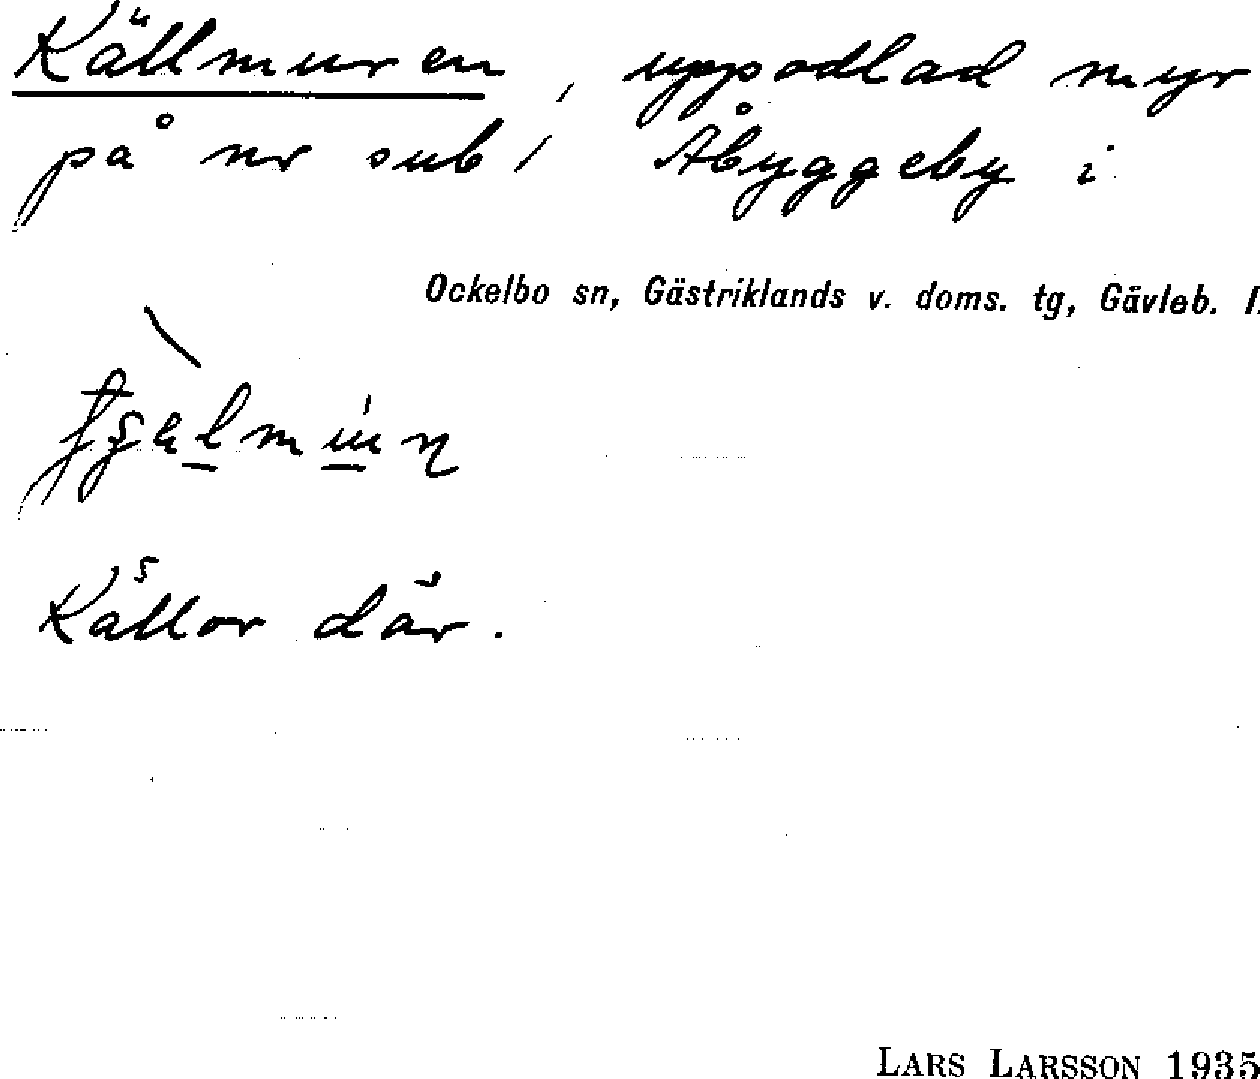 Källmuren, uppodlad myr
på nr sub, Åbyggeby i
Ockelbo sn, Gästriklands v. doms. tg, Gävleb.
Källor där.
LARS LARSSON 1935